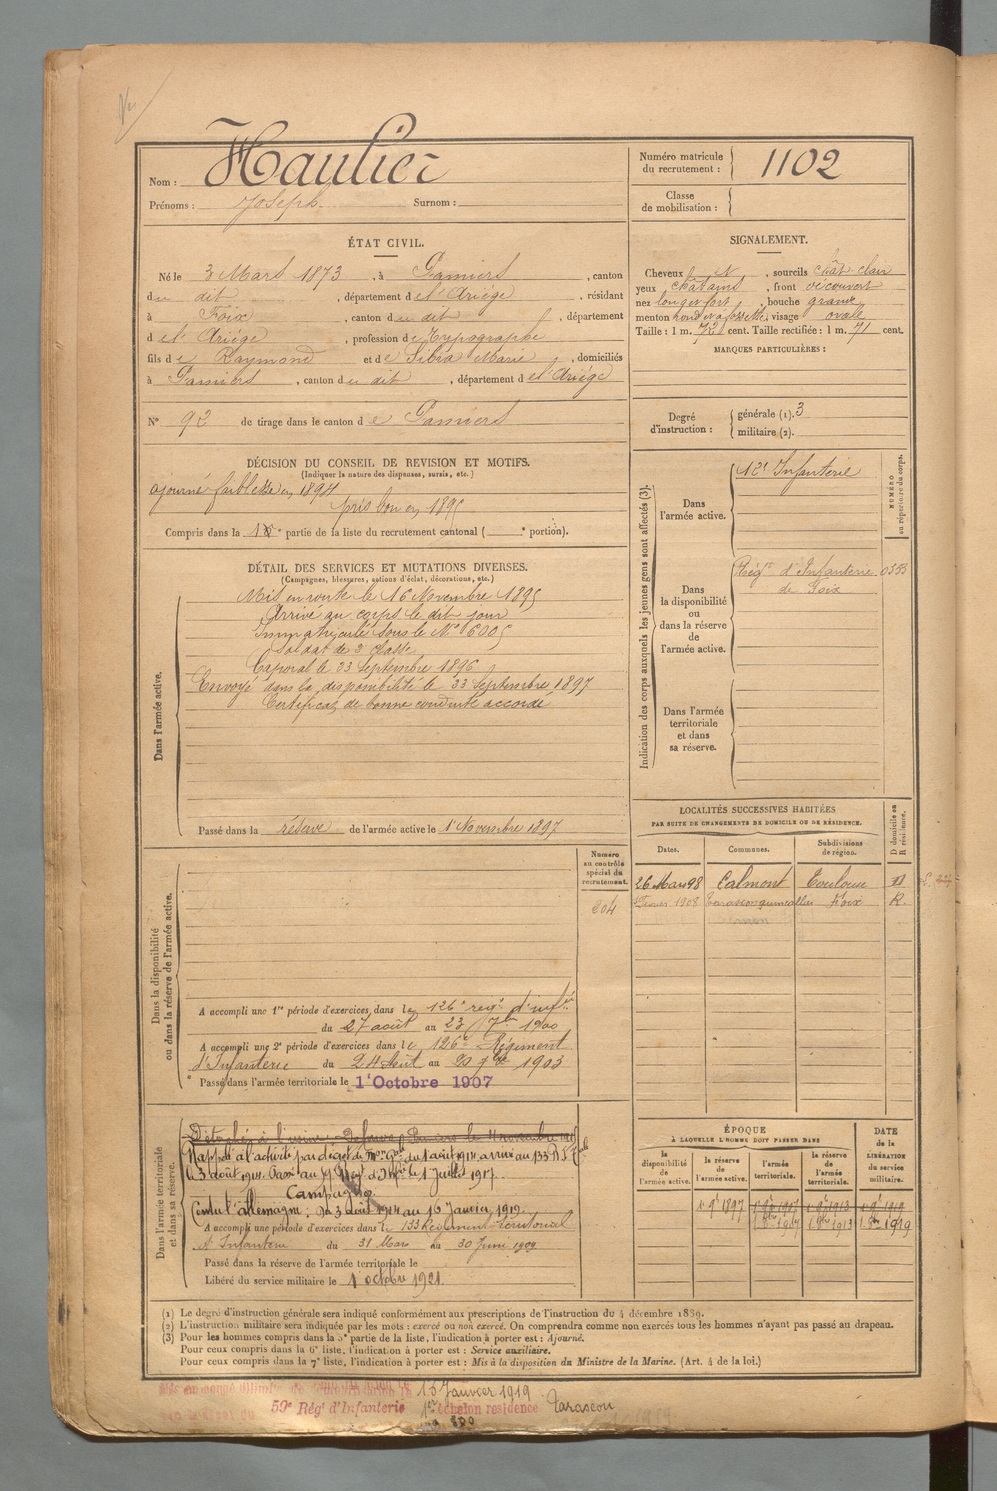 Nom : Haulier
Prénoms : Joseph Surnom :
Numéro matricule du recrutement : 1102
Classe de mobilisation :
ÉTAT CIVIL.
Né le 3 Mars 1873, à Pamiers, canton
du dit, département de l'Ariège, résidant
à Foix, canton du dit, département
de l'Ariège, profession de Typographe
fils de Raymond et de Sibia Marie, domiciliés
à Pamiers, canton du dit, département de l'Ariège
N° 92 de tirage dans le canton de Pamiers
SIGNALEMENT.
Cheveux et, sourcils chât clair
yeux châtains, front découvert
nez long et fort, bouche grande
menton rond, visage ovale
Taille : 1 m. 72 cent. Taille rectifiée : 1 m. 71 cent.
MARQUES PARTICULIÈRES :
Degré d'instruction : générale (1). 3
militaire (2).
DÉCISION DU CONSEIL DE REVISION ET MOTIFS.
(Indiquer la nature des dispenses, sursis, etc.)
ajourné faiblesse en 1894
pris bon en 1895
Compris dans la partie de la liste du recrutement cantonal ( e portion).
DÉTAIL DES SERVICES ET MUTATIONS DIVERSES.
(Campagnes, blessures, actions d'éclat, décorations, etc.)
Dans l'armée active.
Mis en route le 16 Novembre 1895
Arrivé au corps le dit jour
Immatriculé sous le N° 6005
Soldat de 2e classe
Caporal le 23 Septembre 1896
Envoyé dans la disponibilité le 23 Septembre 1897
Certificat de bonne conduite accordé
Passé dans la réserve de l'armée active le 1 Novembre 1897
Indication des corps auxquels les jeunes gens sont affectés (3).
NUMÉRO au répertoire du corps.
Dans l'armée active.
12e Infanterie
Dans la disponibilité ou dans la réserve de l'armée active.
Régt d'Infanterie
de Foix
Dans l'armée territoriale et dans sa réserve.
LOCALITÉS SUCCESSIVES HABITÉES
PAR SUITE DE CHANGEMENTS DE DOMICILE OU DE RÉSIDENCE.
D domicile ou R résidence.
Dates. Communes. Subdivisions de région.
26 Mars 98 Calmont Toulouse D
1908 Foix R.
Dans la disponibilité ou dans la réserve de l'armée active.
Numéro au contrôle spécial du recrutement.
204
A accompli une 1re période d'exercices dans le 126e regt d'infie
du 27 août au 23 7bre 1900
A accompli une 2e période d'exercices dans le 126e Régiment
d'Infanterie du 24 Août au 7bre 1903
Passé dans l'armée territoriale le 1 Octobre 1907
Dans l'armée territoriale et dans sa réserve.
Détaché à l'usine Pamiers le novembre
Rappelé à l'activité par décret de du 1 août 1914, arrivé au 133 R I T
le 3 août 1914. Passé au Regt d'Infie le 1 Juillet 1917.
Campagne
Contre l'Allemagne : du 3 août 1914 au 16 Janvier 1919.
A accompli une période d'exercices dans le 133 Régiment territorial
d'Infanterie du 31 Mai au 30 Juin 1909
Passé dans la réserve de l'armée territoriale le
Libéré du service militaire le 1 octobre 1921
ÉPOQUE
A LAQUELLE L'HOMME DOIT PASSER DANS
DATE de la LIBÉRATION du service militaire.
la disponibilité de l'armée active. la réserve de l'armée active. l'armée territoriale. la réserve de l'armée territoriale.
1897 1907 1913 1919
1907 1913 1919
(1) Le degré d'instruction générale sera indiqué conformément aux prescriptions de l'instruction du 4 décembre 1889.
(2) L'instruction militaire sera indiquée par les mots : exercé ou non exercé. On comprendra comme non exercés tous les hommes n'ayant pas passé au drapeau.
(3) Pour les hommes compris dans la 5e partie de la liste, l'indication à porter est : Ajourné.
Pour ceux compris dans la 6e liste, l'indication à porter est : Service auxiliaire.
Pour ceux compris dans la 7e liste, l'indication à porter est : Mis à la disposition du Ministre de la Marine. (Art. 4 de la loi.)
Mis en congé illimité de démobilisation le 15 Janvier 1919
59e Régt d'Infanterie échelon residence Tarascon